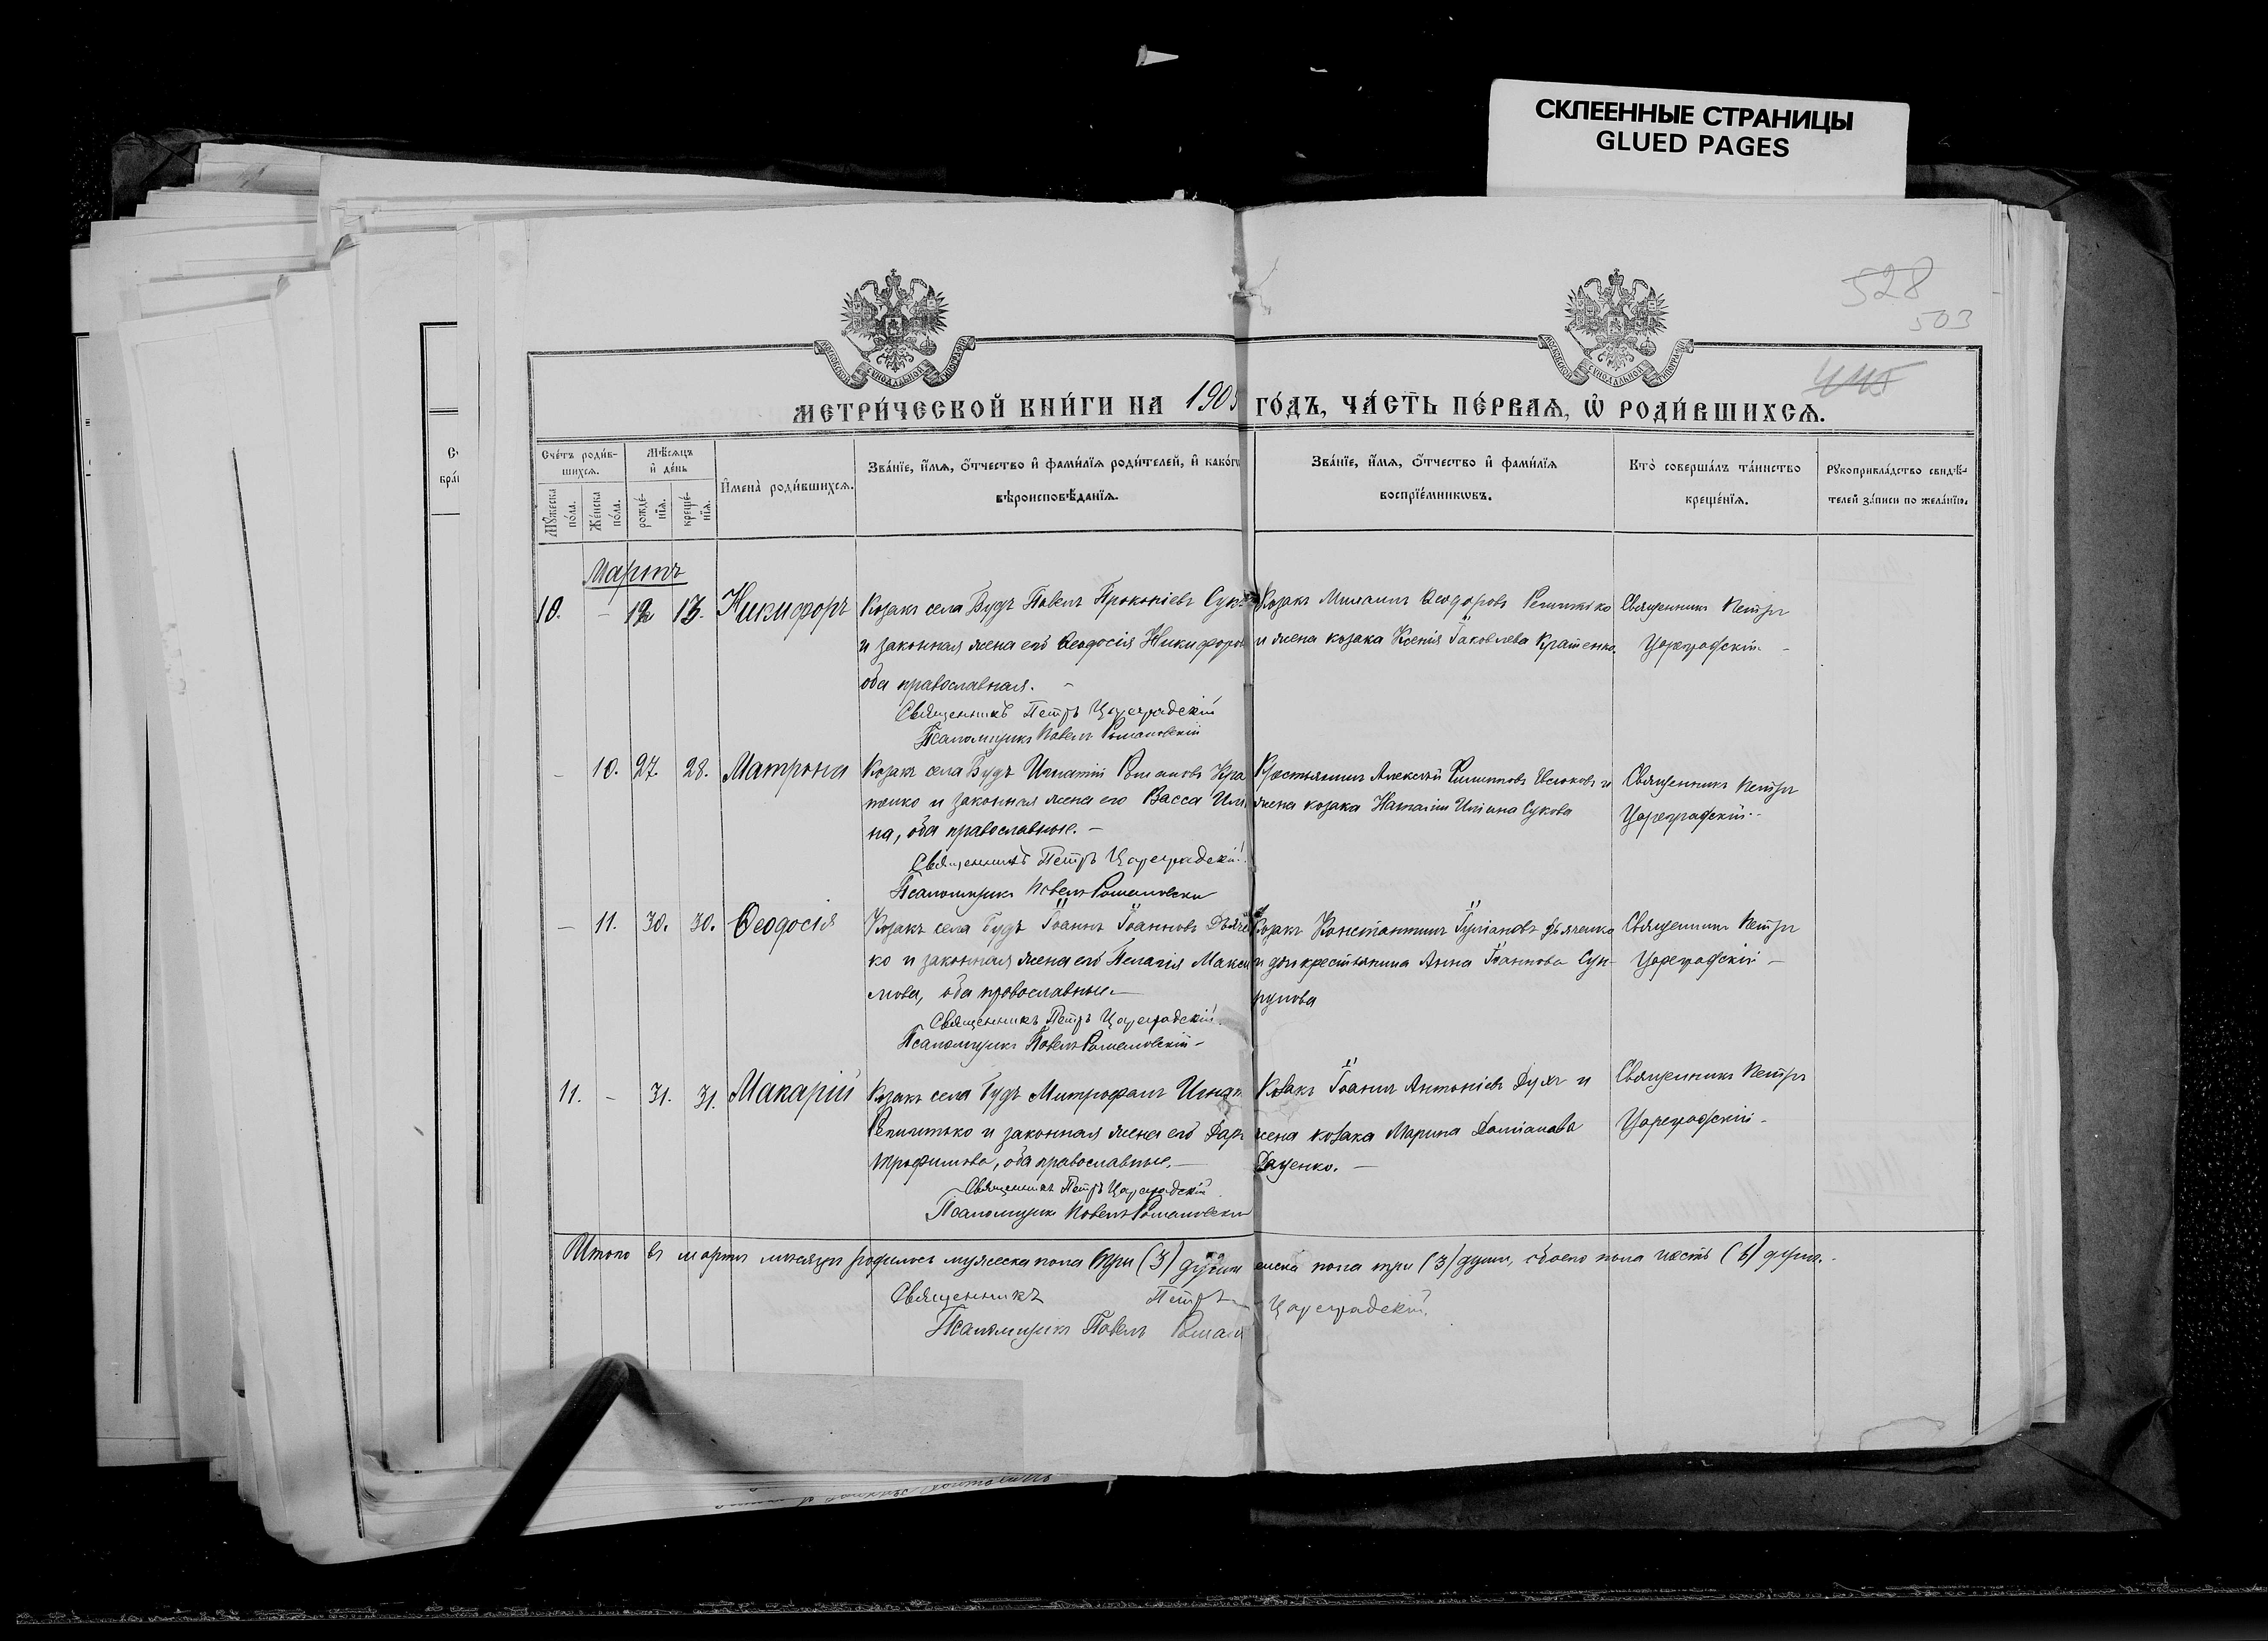 СКЛЕЕННЫЕ СТРАНИЦЫ
GLUED PAGES
528
503
МЕТРИ́ЧЕСКОЙ КНИ́ГИ НА 1905 ГО́ДЪ, ЧА́СТЬ ПЕ́РВАѦ, Ѽ РОДИ́ВШИХСѦ.
Сче́тъ роди́в-
шихсѧ.
Мꙋ́жеска
по́ла.
Же́нска
по́ла.
Мѣ́сѧцъ
и҆ де́нь
рожде́-
нїѧ.
креще́-
нїѧ.
И҆мена̀ роди́вшихсѧ.
Зва́нїе, и҆́мѧ, ѻ҆́тчество и҆ фами́лїѧ роди́телей, и҆ како́гѡ
вѣроисповѣ́данїѧ.
Зва́нїе, и҆́мѧ, ѻ҆́тчество и҆ фами́лїѧ
воспрїе́мникѡвъ.
Кто̀ соверша́лъ та́инство
креще́нїѧ.
Рꙋкоприкла́дство свидѣ́-
телей за́писи по жела́нїю.
Мартъ
10. - 12 13. Никифоръ
Козакъ села Будъ Павелъ Прокопіевъ
и законная жена его Ѳеодосія Никифоров
оба православная. -
Священникъ Петръ Цареградскій
Псаломщикъ Павелъ Романовскій
Козакъ Михаилъ Ѳеодоровъ Репишко
и жена козака Ксенія Іаковлева Кратенко.
Священникъ Петръ
Цареградскій -
- 10. 27. 28. Матрона
Козакъ села Будъ Игнатій Романовъ Кра
тенко и законная жена его Васса Или
на, оба православные. -
Священникъ Петръ Цареградскій
Псаломщикъ Павелъ Романовскій
Крестьянинъ Алексѣй Филипповъ Евсюковъ и
жена козака Наталія Иліина Сукова
Священникъ Петръ
Цареградскій -
- 11. 30. 30. Ѳеодосія
Козакъ села Будъ Іоаннъ Іоанновъ Дьячен
ко и законная жена его Пелагія Макси
мова, оба православные. -
Священникъ Петръ Цареградскій
Псаломщикъ Павелъ Романовскій -
Козакъ Константинъ Іуліановъ Дьяченко
и крестьянина Анна Іоаннова Сук-
рунова
Священникъ Петръ
Цареградскій -
11. - 31. 31. Макарій
Козакъ села Будъ Митрофанъ Игнат
Репишко и законная жена его Дар
Трофимова, оба православные. -
Священникъ Петръ Цареградскій
Псаломщикъ Павелъ Романовскій
Козакъ Іоаннъ Антоніевъ Духъ и
жена козака Марина Даміанова
Даценко. -
Священникъ Петръ
Цареградскій -
Итого въ мартѣ мѣсяцѣ родилось мужеска пола три (3) души женска пола три (3) души, обоего пола шесть (6) душъ. -
Священникъ Петръ Цареградскій.
Псаломщикъ Павелъ Роман